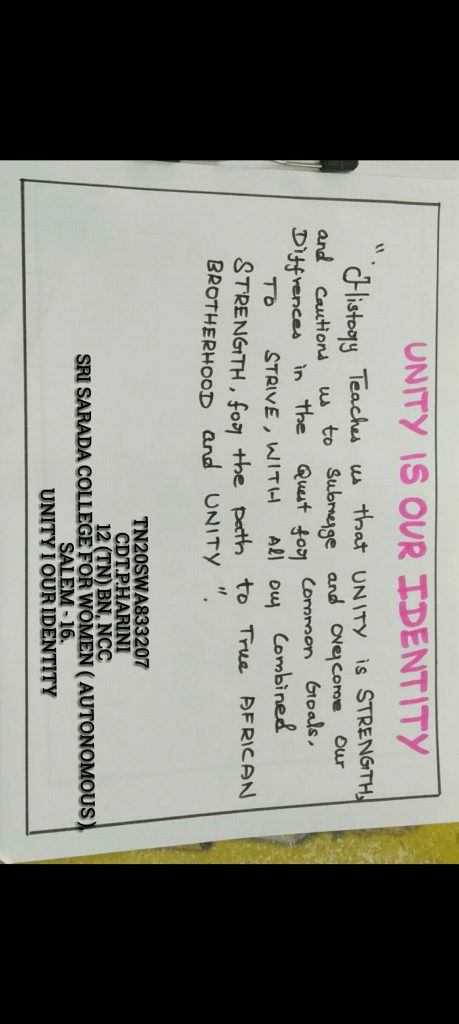 UNITY IS OUR IDENTITY
". History Teaches us that UNITY is STRENGTH,
and cautions us to submerge and overcome our
Diffrences in the Quest for Common Goals,
To STRIVE, WITH All our Combined
STRENGTH, for the path to True AFRICAN
BROTHERHOOD and UNITY ".
TN20SWA833207
CDT.P.HARINI
12 (TN) BN, NCC
SRI SARADA COLLEGE FOR WOMEN ( AUTONOMOUS ),
SALEM - 16.
UNITY I OUR IDENTITY